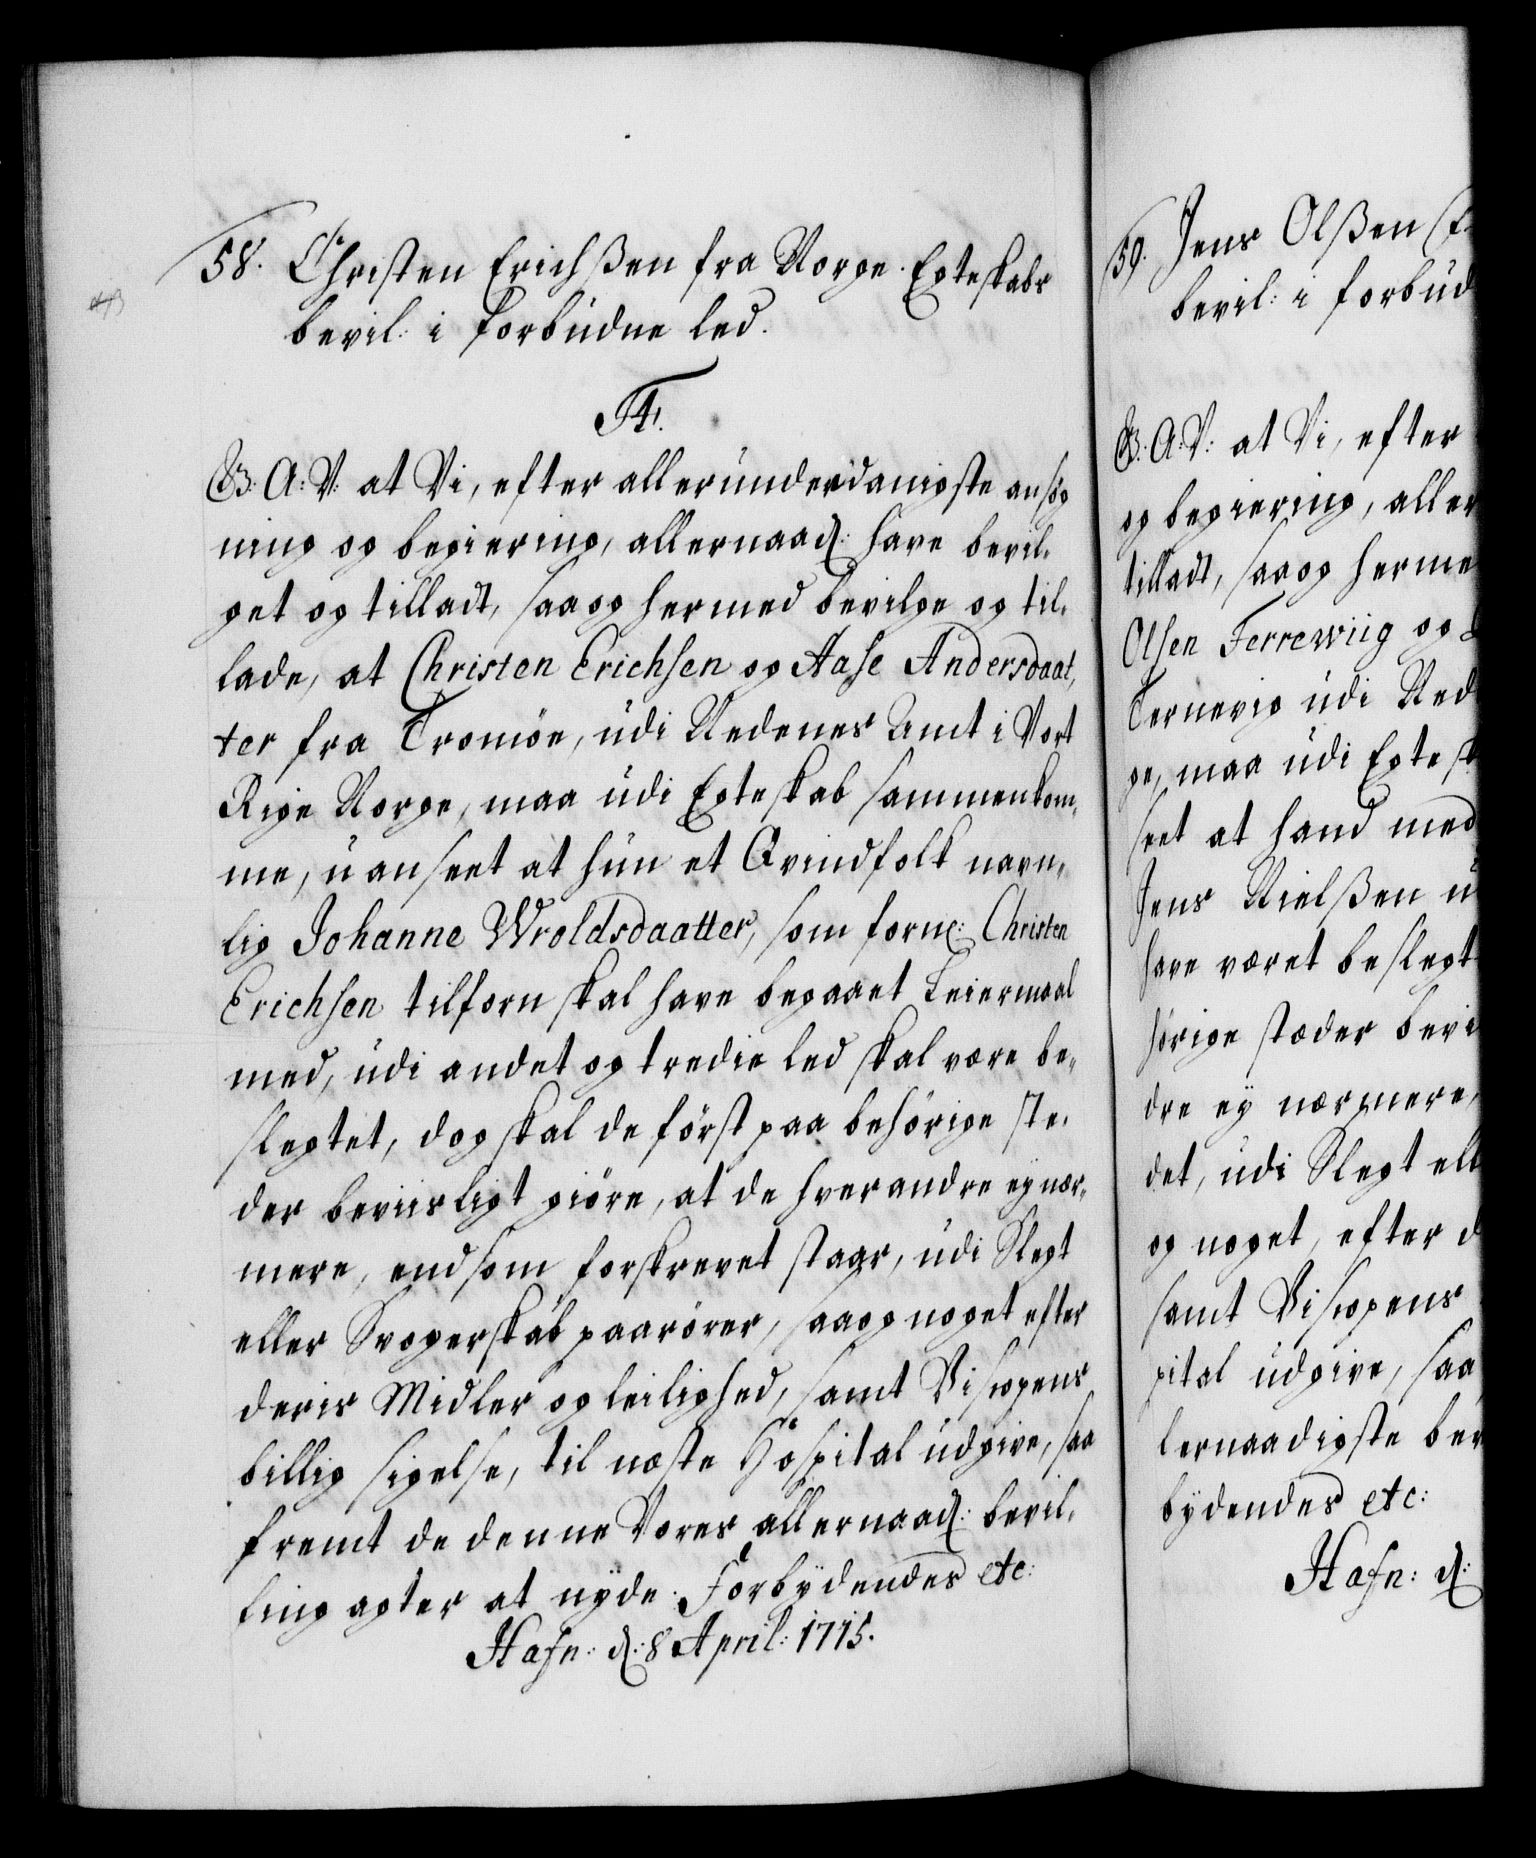 58. Christen Erichßen fra Norge Egteskabs
bevil: i forbudne led.
F4.
G. A: V: at Vi, efter allerunderdanigste ansøg
ning og begiering, allernaad: have bevil,
get og tilladt, saa og hermed bevilge og til,
lade, at Christen Erichsen og Aase Andersdaat,
ter fra Tromöe, udi Nedenes Amt i Vort
Rige Norge, maa udi Egteskab sammenkom,
me, uanseet at hun et Qvindfolk navn,
lig Johanne Wroldsdaatter, som forn: Christen
Erichsen tilforn skal have begaaet Leiermaal
med, udi andet og tredie led skal være be,
slegtet, dog skal de först paa behörige ste,
der beviisligt giöre, at de hverandre ey nær,
mere, end som forskrevet staar, udi Slegt
eller Svogerskab paarörer, saa og noget efter
deris Midler og leilighed, samt Biscopens
billig sigelse, til næste Hospital udgive, saa
fremt de denne Vores allernaad: bevil,
ling agter at nyde. Forbydendes etc:
Hafn: d: 8 April: 1715.
59. Jens Olßen
bevil: i forbud
G. A: V: at Vi, efter
og begiering, aller
tilladt, saa og herme
Olsen Ferrewiig og
Ternevig udi Ned
ge, maa udi Egtesk
seet at hand med
Jens Nielßen
have været beslegt
hörige stæder bevi
dre ey nærmere,
det, udi Slegt ell
og noget, efter d
samt Biscopens
pital udgive, saa
lernaadigste bev
bydendes etc:
Hafn: d: